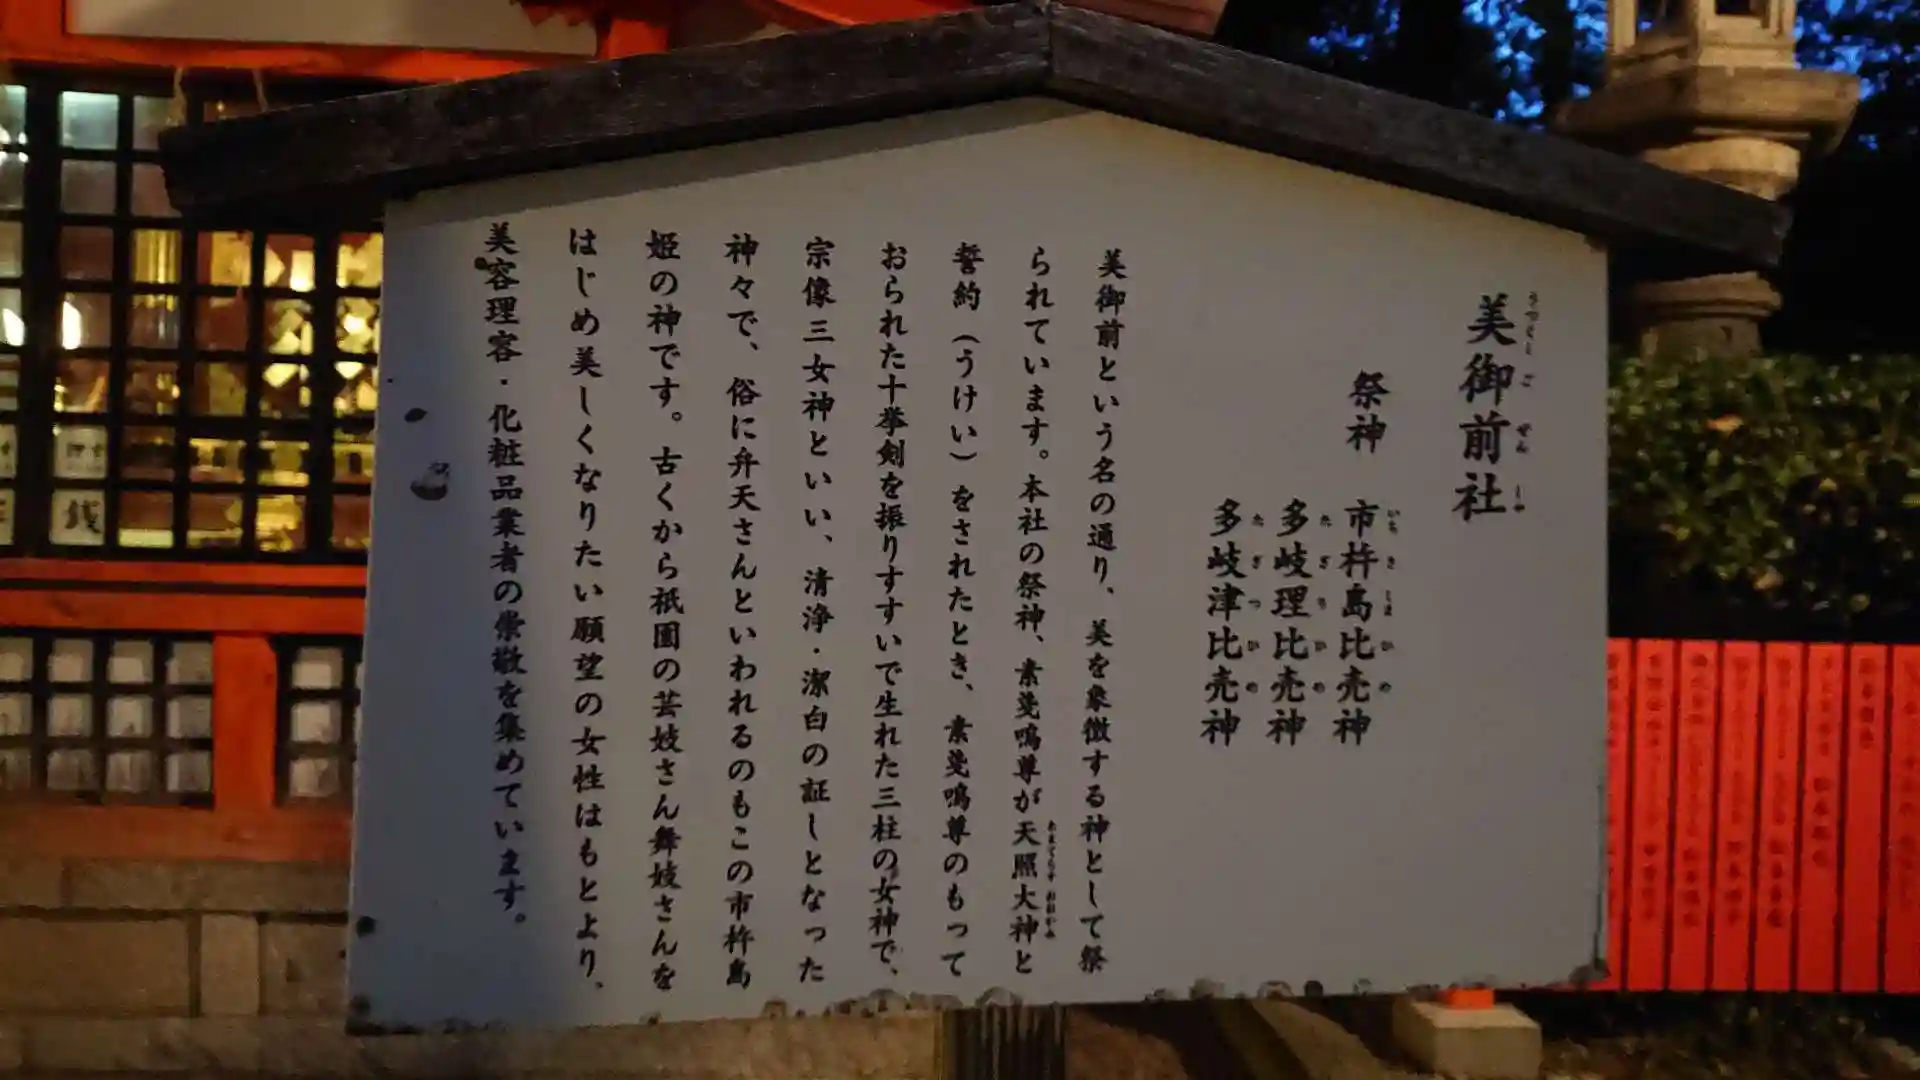 美御前社
うつくしごぜんしゃ
祭神
市杵島比売神
いちきしまひめ
多岐理比売神
たぎりひめ
多岐津比売神
たぎつひめ
美御前という名の通り、美を象徴する神として祭
られています。本社の祭神、素戔嗚尊が天照大神と
あまてらすおおかみ
誓約（うけい）をされたとき、素戔鳴尊のもって
おられた十拳剣を振りすすいで生れた三柱の女神で、
宗像三女神といい、清浄・潔白の証しとなった
神々で、俗に弁天さんといわれるのもこの市杵島
姫の神です。古くから祇園の芸妓さん舞妓さんを
はじめ美しくなりたい願望の女性はもとより、
美容理容・化粧品業者の崇敬を集めています。
銭